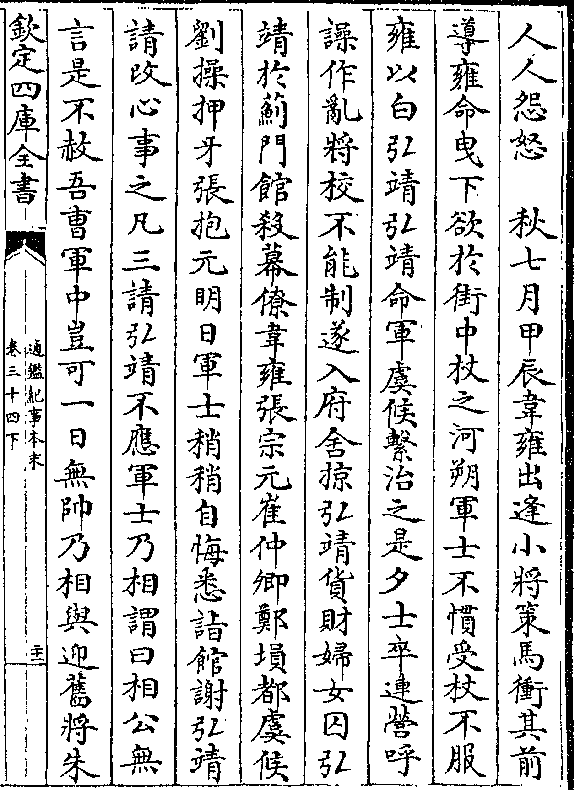 人人怨怒　秋七月甲辰韋雍出逢小將策馬衝其前
導雍命曳下欲於街中杖之河朔軍士不慣受杖不服
雍以白弘靖弘靖命軍虞候繫治之是夕士卒連營呼
譟作亂將校不能制遂入府舍掠弘靖貨財婦女囚弘
靖於薊門館殺幕僚韋雍張宗元崔仲卿鄭塤都虞候
劉操押牙張抱元明日軍士稍稍自悔悉詣館謝弘靖
請改心事之凡三請弘靖不應軍士乃相謂曰相公無
言是不赦吾曹軍中豈可一日無帥乃相與迎舊將朱
欽定四庫全書
通鑑紀事本末
卷三十四下